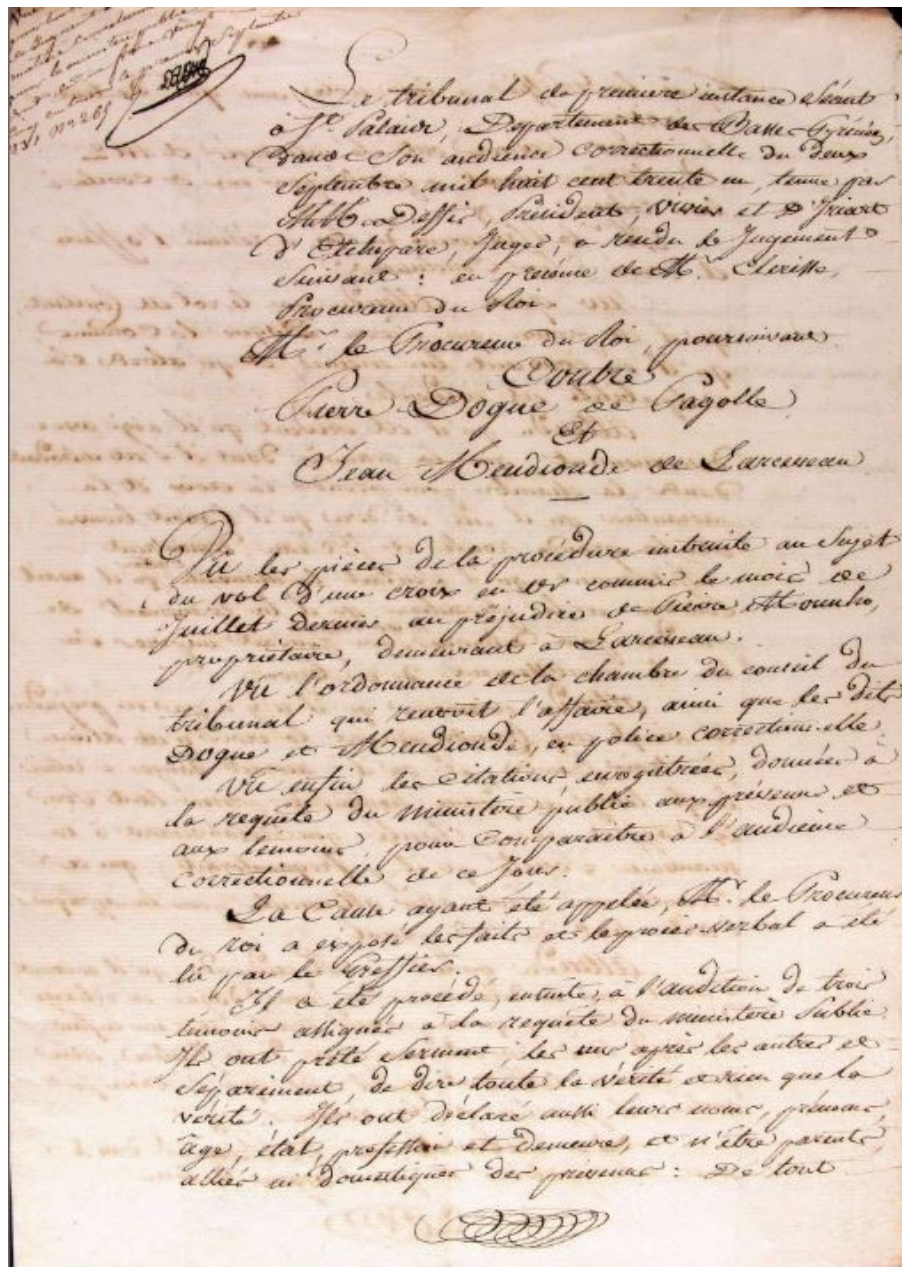 Le tribunal de première instance séant
à St. Palais, Département des Basses Pyrénées,
dans son audience correctionnelle du deux
Septembre mil huit cent trente un, tenue par
MM. Deffis, Président, Vivier et D'Iriart
d'Etchepare, Juges, a rendu le Jugement
suivant : en présence de Mr. Clerisse,
Procureur du Roi.
Mr. le Procureur du Roi, poursuivant
Contre
Pierre Dogue de Pagolle
Et
Jean Mendionde de Larceveau
Vu les pièces de la procédure instruite au sujet
du vol d'une croix en or commis le mois de
Juillet dernier au préjudice de Pierre Mounho,
propriétaire, demeurant à Larceveau.
Vu l'ordonnance de la chambre du conseil du
tribunal qui renvoit l'affaire, ainsi que les dits
Dogue et Mendionde, en police correctionnelle.
Vu enfin les citations enregistrées, données à
la requête du ministère public aux prévenus et
aux témoins, pour comparaitre à l'audience
correctionnelle de ce jour.
La Cause ayant été appelée, Mr. le Procureur
du roi a exposé les faits et le procès-verbal a été
lu par le Greffier.
Il a été procédé, ensuite, à l'audition de trois
témoins assignés à la requête du ministère Public.
Ils ont prêté Serment, les uns après les autres et
séparément, de dire toute la vérité et rien que la
verité. Ils ont déclaré aussi leurs noms, prénoms,
âge, état, profession et demeure, et n'être parents,
alliés ni domestiques des prévenus : De tout